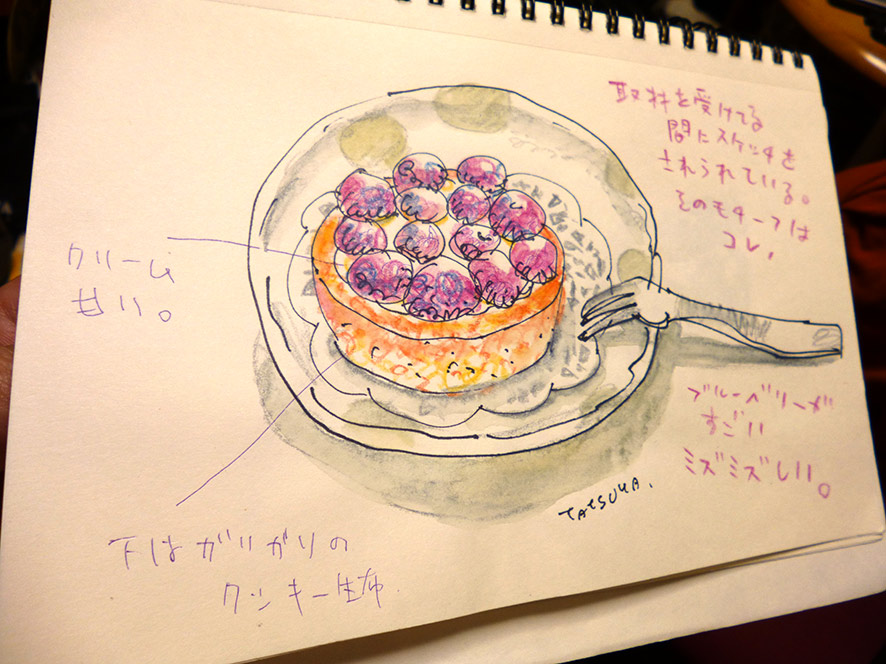 取材を受けてる
間にスケッチを
されられている。
そのモチーフは
コレ、
クリーム
甘い。
ブルーベリーが
すごい
ミズミズしい。
TATSUYA.
下はガリガリの
クッキー生布